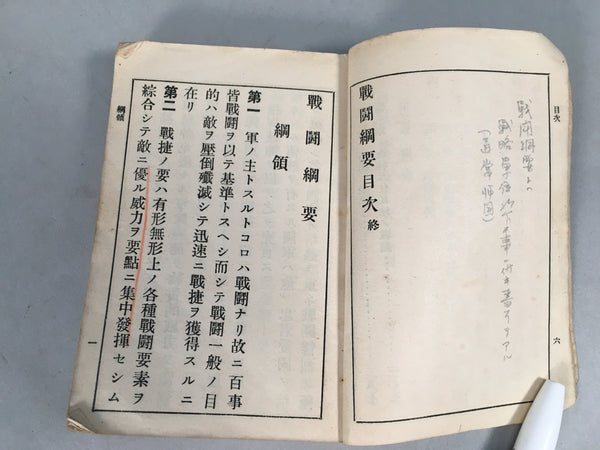 目次
戰鬪綱要トハ
戰鬪綱要目次 終
六
戰鬪綱要
綱領
第一 軍ノ主トスルトコロハ戰鬪ナリ故ニ百事
皆戰鬪ヲ以テ基準トスヘシ而シテ戰鬪一般ノ目
的ハ敵ヲ壓倒殲滅シテ迅速ニ戰捷ヲ獲得スルニ
在リ
第二 戰捷ノ要ハ有形無形上ノ各種戰鬪要素ヲ
綜合シテ敵ニ優ル威力ヲ要點ニ集中發揮セシム
綱領
一